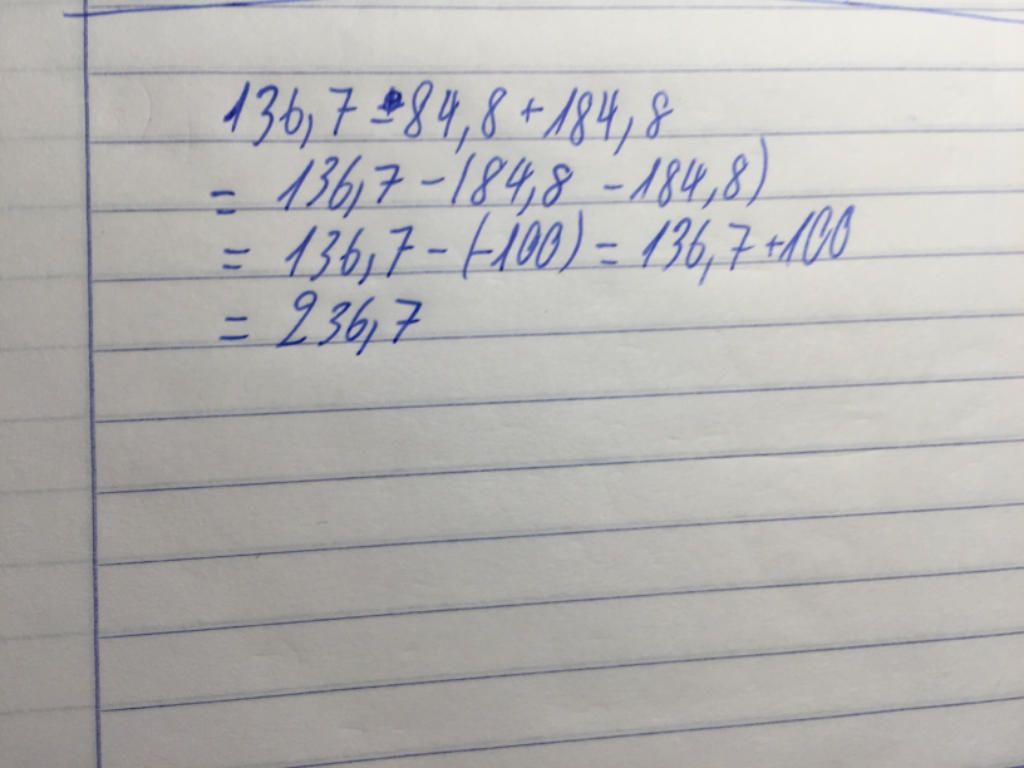 136,7 - 84,8 + 184,8
= 136,7 - (84,8 - 184,8)
= 136,7 - (-100) = 136,7 + 100
= 236,7